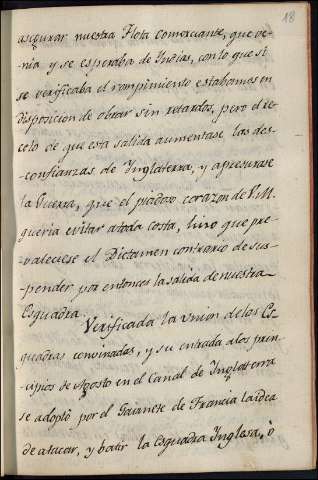 18
asegurar nuestra Flota comerciante, que ve-
nia y se esperaba de Indias, con lo que si
se verificaba el rompimiento estabamos en
disposicion de obrar sin retardos, pero el re-
celo de que esta salida aumentase las des-
confianzas de Inglaterra, y apresurase
la Guerra, que el piadoso corazon de V.M.
queria evitar a toda costa, hizo que pre-
valeciese el Dictamen contrario de sus-
pender por entonces la salida de nuestra
Esquadra.
Verificada la union de los Es-
quadras convinadas, y su entrada a los prin-
cipios de Agosto en el Canal de Inglaterra
se adoptó por el Gavinete de Francia la idea
de atacar, y batir la Esquadra Inglesa, ò